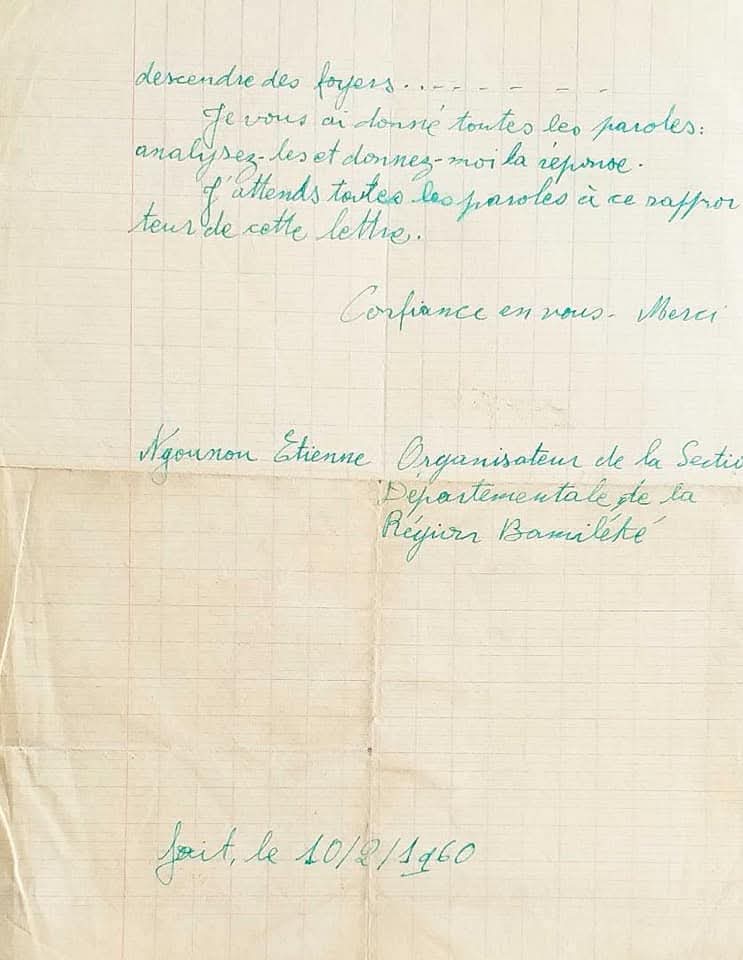 descendre des foyers..-- - - - -
Je vous ai donné toutes les paroles:
analysez-les et donnez-moi la réponse.
J'attends toutes les paroles à ce rappor
teur de cette lettre.
Confiance en vous- Merci
Ngounou Etienne Organisateur de la Sectio
Départementale de la
Région Bamiléké
fait, le 10/2/1960